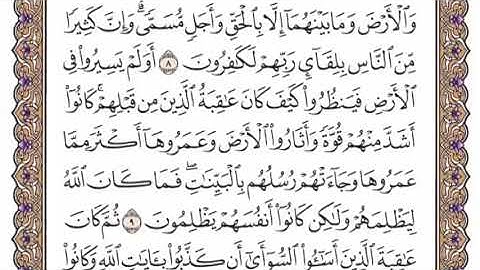 وَٱلْأَرْضَ وَمَا بَيْنَهُمَآ إِلَّا بِٱلْحَقِّ وَأَجَلٍ مُّسَمًّى ۗ وَإِنَّ كَثِيرًا
مِّنَ ٱلنَّاسِ بِلِقَآئِ رَبِّهِمْ لَكَٰفِرُونَ ٨ أَوَلَمْ يَسِيرُوا۟ فِى
ٱلْأَرْضِ فَيَنظُرُوا۟ كَيْفَ كَانَ عَٰقِبَةُ ٱلَّذِينَ مِن قَبْلِهِمْ ۚ كَانُوٓا۟
أَشَدَّ مِنْهُمْ قُوَّةً وَأَثَارُوا۟ ٱلْأَرْضَ وَعَمَرُوهَآ أَكْثَرَ مِمَّا
عَمَرُوهَا وَجَآءَتْهُمْ رُسُلُهُم بِٱلْبَيِّنَٰتِ ۖ فَمَا كَانَ ٱللَّهُ
لِيَظْلِمَهُمْ وَلَٰكِن كَانُوٓا۟ أَنفُسَهُمْ يَظْلِمُونَ ٩ ثُمَّ كَانَ
عَٰقِبَةَ ٱلَّذِينَ أَسَٰٓـُٔوا۟ ٱلسُّوٓأَىٰٓ أَن كَذَّبُوا۟ بِـَٔايَٰتِ ٱللَّهِ وَكَانُوا۟